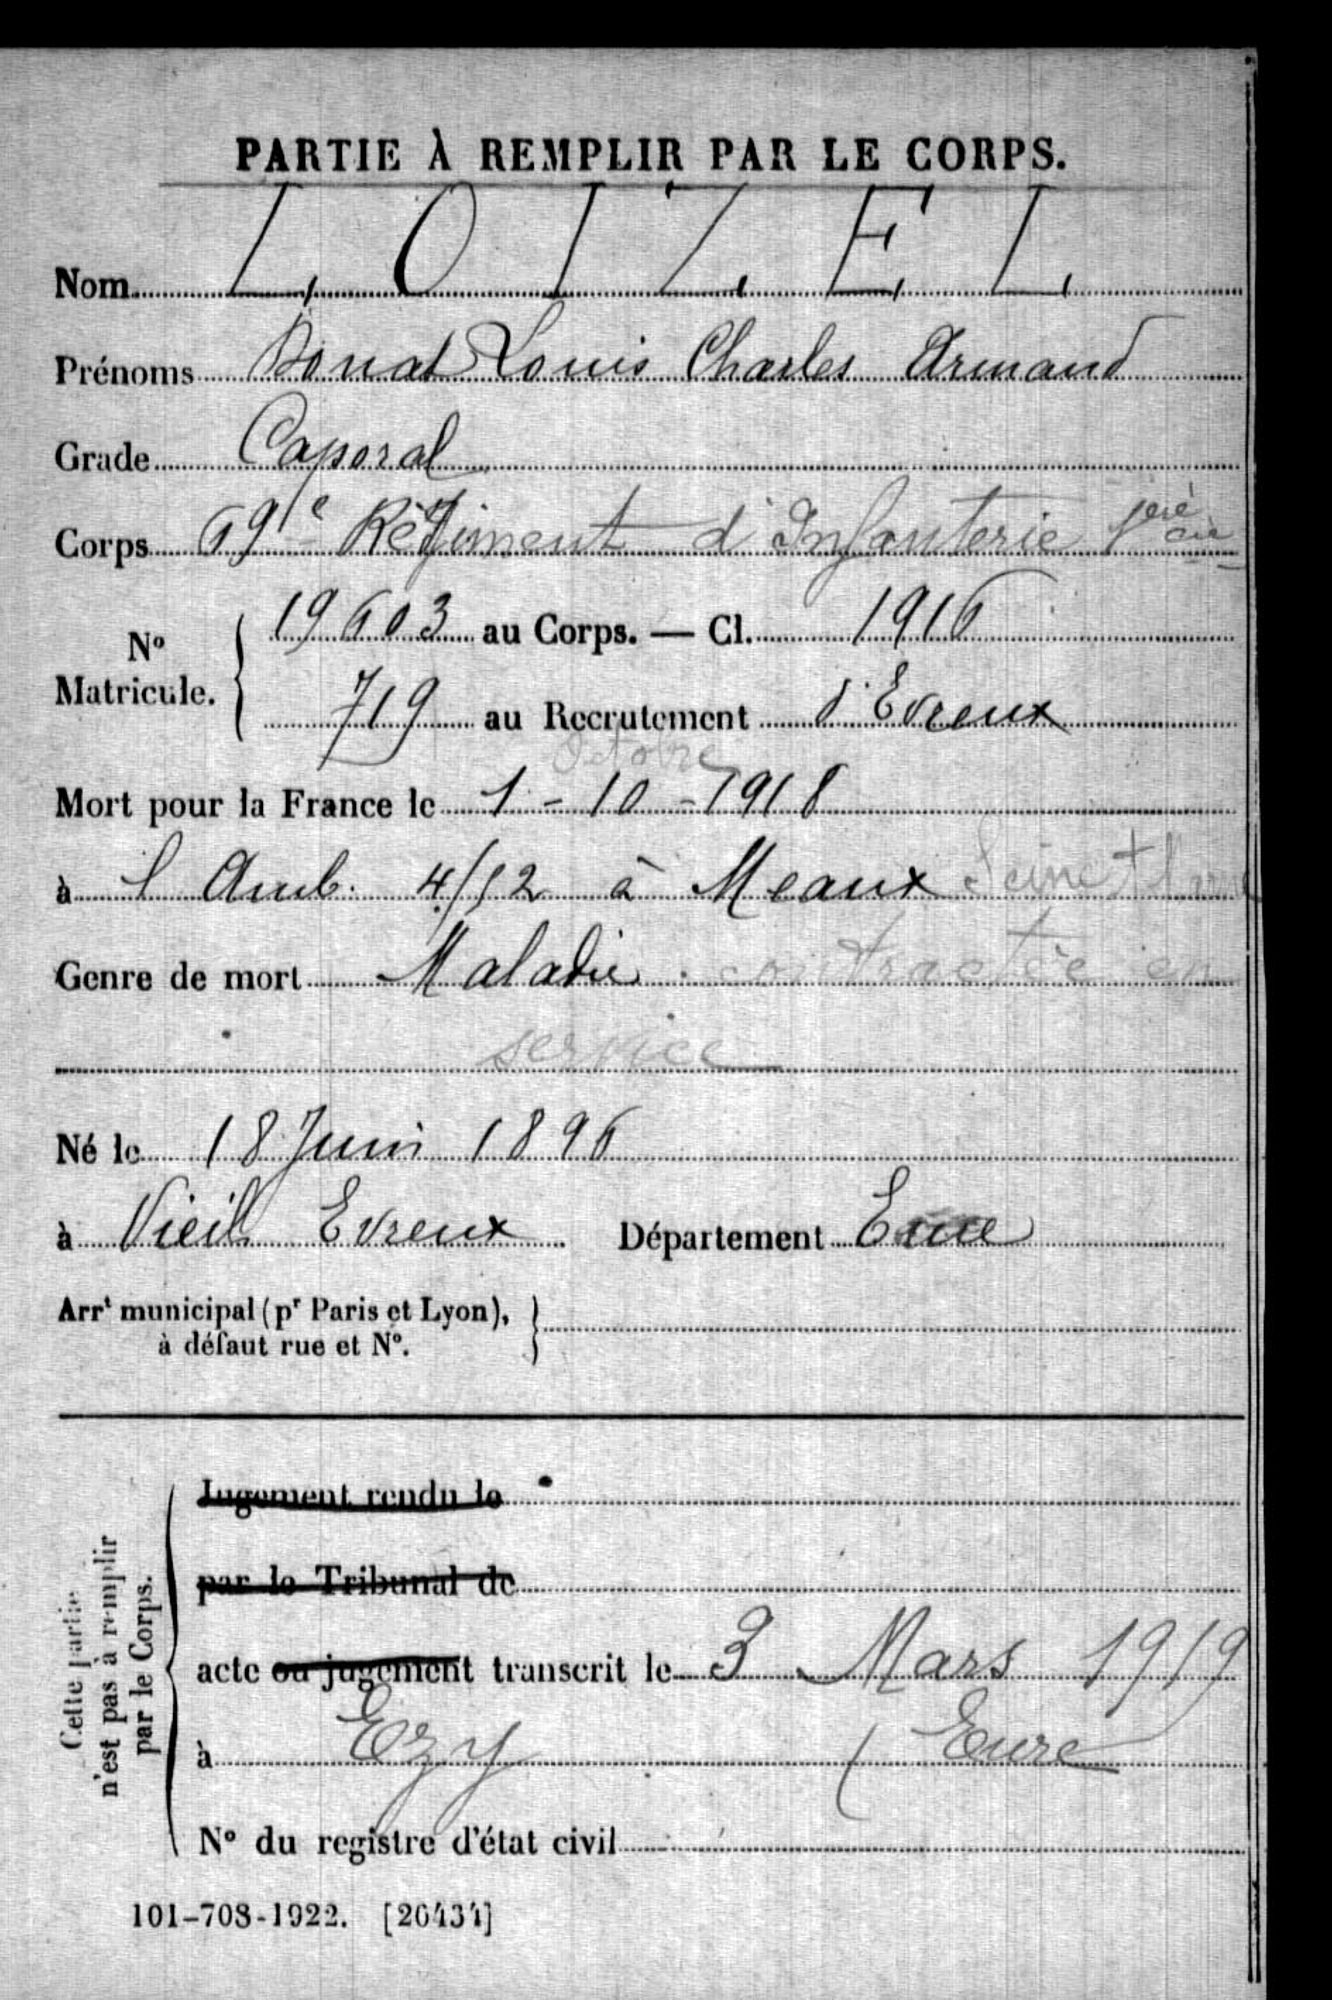 PARTIE À REMPLIR PAR LE CORPS.
Nom LOIZEL
Prénoms Donat Louis Charles Armand
Grade Caporal
Corps 69e Régiment d'Infanterie
19603 au Corps. — Cl. 1916
No Matricule.
719 au Recrutement d'Evreux
Octobre
Mort pour la France le 1-10-1918
à l'Amb. 4/52 à Meaux Seine et Marne
Genre de mort Maladie contractée en
service
Né le 18 Juin 1896
à Vieil Evreux Département Eure
Arrt municipal (pr Paris et Lyon),
à défaut rue et No.
Cette partie
n'est pas à remplir
par le Corps.
Jugement rendu le
par le Tribunal de
acte ou jugement transcrit le 3 Mars 1919
à Ezy (Eure
No du registre d'état civil
101-708-1922. [26434]